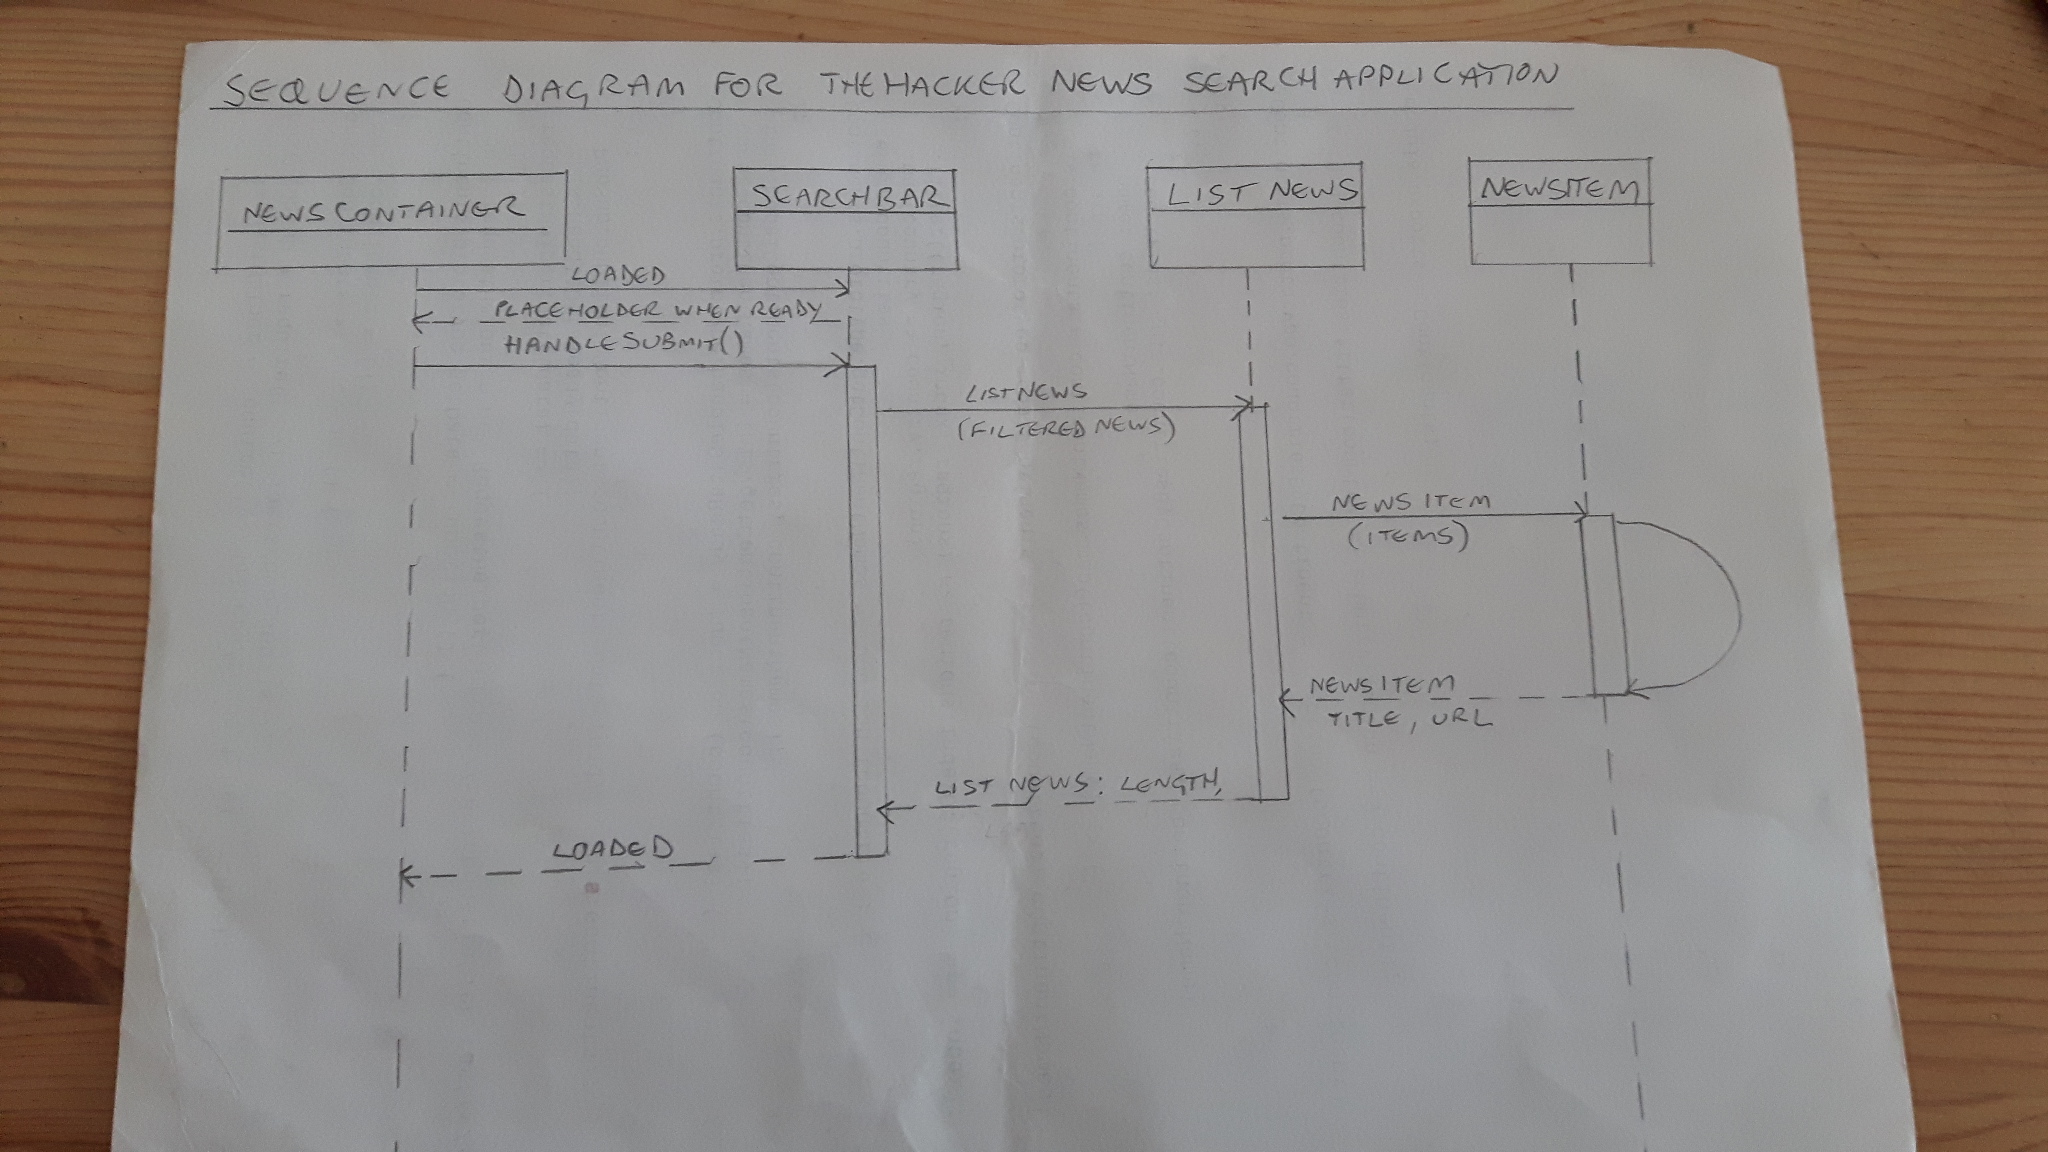 SEQUENCE DIAGRAM FOR THE HACKER NEWS SEARCH APPLICATION
NEWSCONTAINER
SEARCHBAR
LIST NEWS
NEWSITEM
LOADED
PLACEHOLDER WHEN READY
HANDLESUBMIT()
LISTNEWS
(FILTERED NEWS)
NEWS ITEM
(ITEMS)
NEWSITEM
TITLE, URL
LIST NEWS: LENGTH,
LOADED